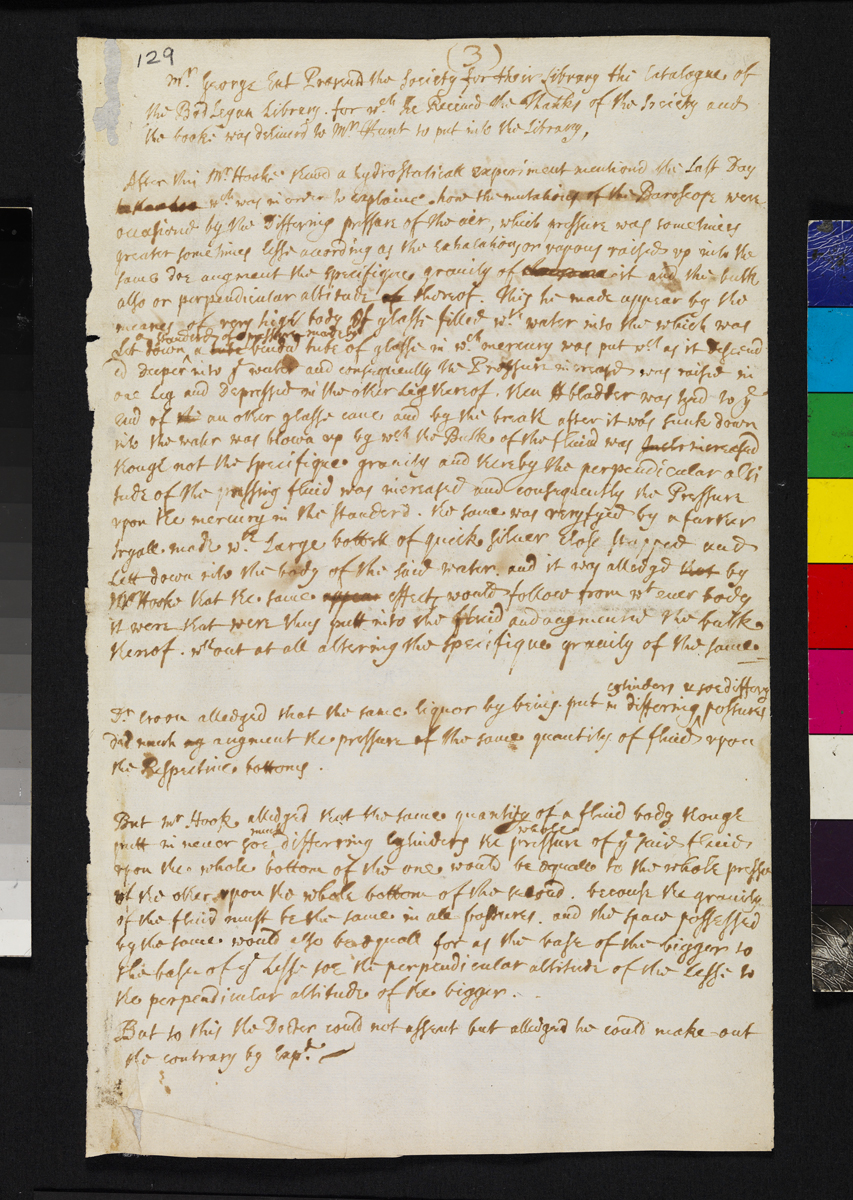 129
(3)
Mr. George Ent Presend the Society for their Library the Catalogue of
the Bodlegan Library. for wch he Received the Thanks of the Society and
the booke was deliverd to Mr Hunt to put into the Library,
After this Mr Hooke shewd a hydrostaticall experiment mentiond the Last Day
wch was in order to explaine how the mutations of the Baroscope were
occasiond by the differing pressure of the air, which pressure was sometimes
greater sometimes lesse according as the exhalations or vapous raised up into the
same doe augment the specifique gravity of it and the bulk
also or perpendicular altitude thereof. This he made appear by the
means of a very high body of glasse filled wth water into the which was
a standerd of pressure made by
Let down a bended tube of glasse in wch mercury was put wch as it descend
'd deeper into ye water and consequently the Pressure increased was raised in
one Leg and depressed in the other Leg thereof. then A bladder was tyed to ye
end of an other glasse cane and by the breath after it was sunk down
into the water was blown up by wch the Bulk of the fluid was increased
though not the specifique gravity and thereby the perpendicular alti
tude of the pressing fluid was increased and consequently the Pressure
upon the mercury in the standerd. the same was veryfyed by a further
tryall made wth Large bottle of quick silver close stopped and
Lett down into the body of the said water. and it was alledgd that by
Mr Hooke that the same effect would follow from wt ever body
it were that were thus putt into the fluid and augmented the bulk
thereof. wthout at all altering the specifique gravity of the same
cylinders & soe differing
Dr Croon alledged that the same liquor by being put in differing postures
did much augment the pressure of the same quantity of fluid upon
the Respective bottoms.
But Mr Hook alledged that the same quantity of a fluid body though
much whole
putt in never soe differring Cylinders the pressure of ye said fluid
upon the whole bottom of the one would be equall to the whole pressu
of the other upon the whole bottom of the second. because the gravity
of the fluid must be the same in all postures. and the space possessed
by the same would also be equall for as the base of the bigger to
the base of ye Lesse soe the perpendicular altitude of the Lesse to
the perpendicular altitude of the bigger.
But to this the Docter could not assent but alledged he could make out
the contrary by Expt.